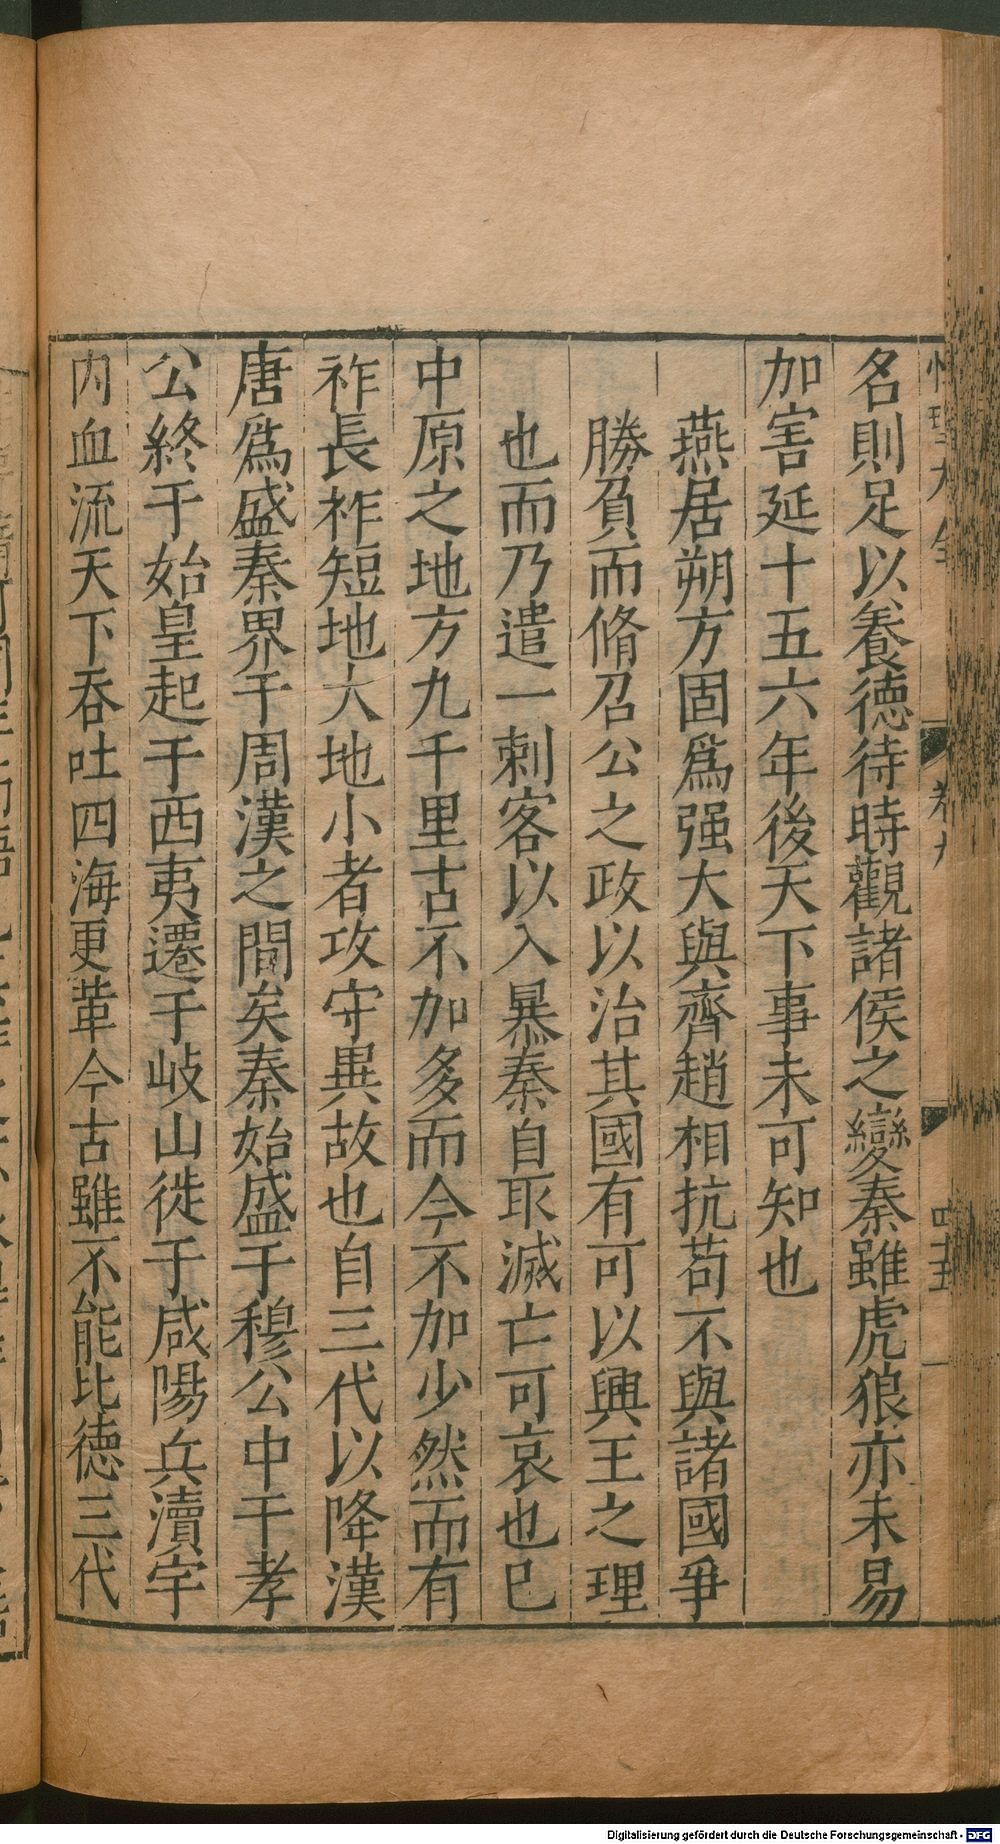 名則足以養德待時觀諸侯之變秦雖虎狼亦未易
加害延十五六年後天下事未可知也
一燕居朔方固爲强大與齊趙相抗苟不與諸國爭
勝負而脩召公之政以治其國有可以興王之理
也而乃遣一刺客以入暴秦自取滅亡可哀也已
中原之地方九千里古不加多而今不加少然而有
祚長祚短地大地小者攻守異故也自三代以降漢
唐爲盛秦界于周漢之間矣秦始盛于穆公中于孝
公終于始皇起于西夷遷于岐山徙于咸陽兵瀆宇
内血流天下吞吐四海更革今古雖不能比德三代
卷九
四十五
Digitalisierung gefördert durch die Deutsche Forschungsgemeinschaft - DFG